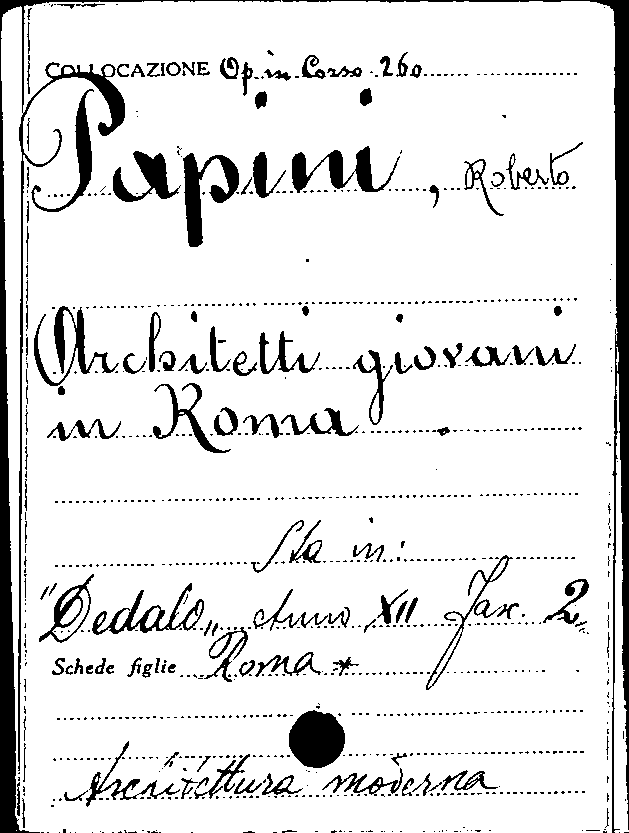 COLLOCAZIONE Op. in Corso 260
Papini, Roberto
Architetti giovani
in Roma.
Sta in:
"Dedalo" Anno XII Fasc. 2
Schede figlie Roma *
Architettura moderna